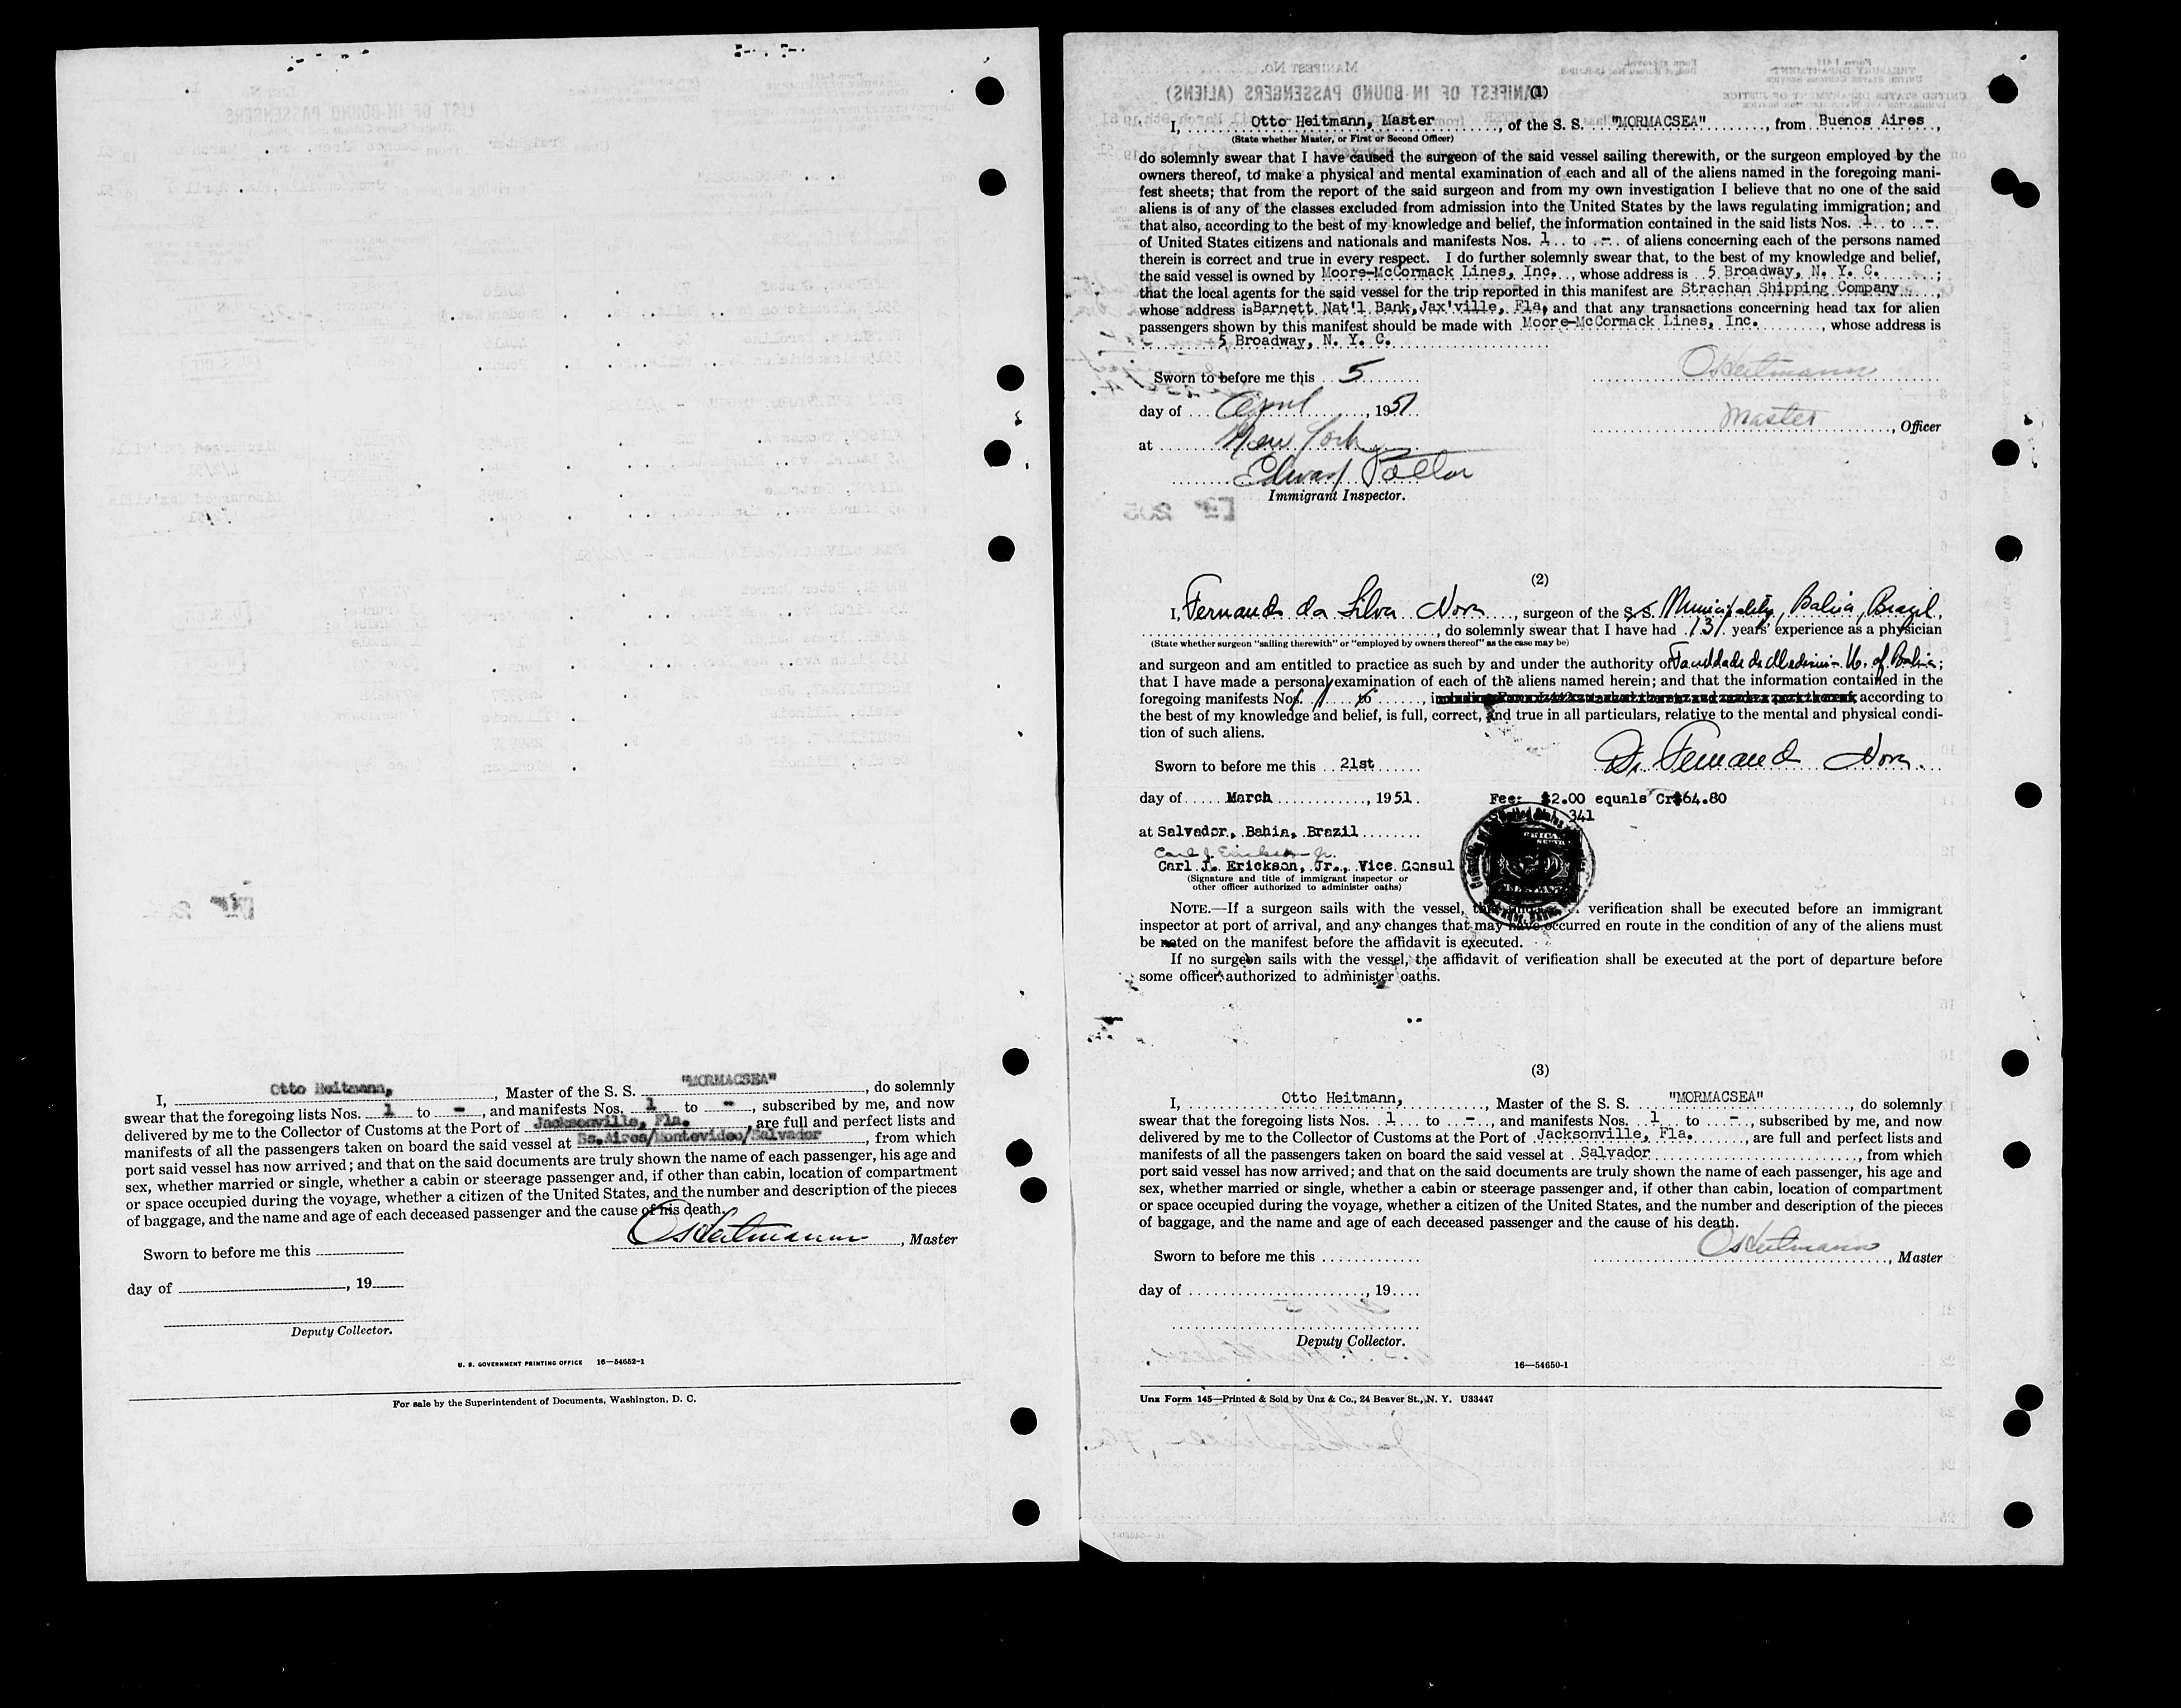 I, Otto Heitmann, , Master of the S. S. "MORMACSEA" , do solemnly
swear that the foregoing lists Nos. 1 to - , and manifests Nos. 1 to - , subscribed by me, and now
delivered by me to the Collector of Customs at the Port of Jacksonville, Fla. , are full and perfect lists and
manifests of all the passengers taken on board the said vessel at Bs.Aires/Montevideo/Salvador , from which
port said vessel has now arrived; and that on the said documents are truly shown the name of each passenger, his age and
sex, whether married or single, whether a cabin or steerage passenger and, if other than cabin, location of compartment
or space occupied during the voyage, whether a citizen of the United States, and the number and description of the pieces
of baggage, and the name and age of each deceased passenger and the cause of his death.
Sworn to before me this
OsHeitmann , Master
day of , 19
Deputy Collector.
U. S. GOVERNMENT PRINTING OFFICE 16—54652-1
For sale by the Superintendent of Documents, Washington, D. C.
MANIFEST No.
MANIFEST OF IN-BOUND PASSENGERS (ALIENS)
(1)
I, Otto Heitmann, Master , of the S. S. "MORMACSEA" , from Buenos Aires ,
(State whether Master, or First or Second Officer)
do solemnly swear that I have caused the surgeon of the said vessel sailing therewith, or the surgeon employed by the
owners thereof, to make a physical and mental examination of each and all of the aliens named in the foregoing mani-
fest sheets; that from the report of the said surgeon and from my own investigation I believe that no one of the said
aliens is of any of the classes excluded from admission into the United States by the laws regulating immigration; and
that also, according to the best of my knowledge and belief, the information contained in the said lists Nos. 1 to -
of United States citizens and nationals and manifests Nos. 1 to - of aliens concerning each of the persons named
therein is correct and true in every respect. I do further solemnly swear that, to the best of my knowledge and belief,
the said vessel is owned by Moore-McCormack Lines, Inc. , whose address is 5 Broadway, N. Y. C. ;
that the local agents for the said vessel for the trip reported in this manifest are Strachan Shipping Company ,
whose address is Barnett Nat'l Bank, Jax'ville, Fla, and that any transactions concerning head tax for alien
passengers shown by this manifest should be made with Moore-McCormack Lines, Inc. , whose address is
5 Broadway, N. Y. C.
Sworn to before me this 5
OsHeitmann
day of April , 1951
Master , Officer
at New York
Edward
Immigrant Inspector.
(2)
I, Fernando da Silva Nova , surgeon of the S.S. Municipality, Bahia, Brazil ,
, do solemnly swear that I have had 13 years' experience as a physician
(State whether surgeon "sailing therewith" or "employed by owners thereof" as the case may be)
and surgeon and am entitled to practice as such by and under the authority of Faculdade de Medicina U. of Bahia ;
that I have made a personal examination of each of the aliens named herein; and that the information contained in the
foregoing manifests Nos. 1 to , according to
the best of my knowledge and belief, is full, correct, and true in all particulars, relative to the mental and physical condi-
tion of such aliens.
Dr Fernando Nova.
Sworn to before me this 21st
day of March , 1951.
Fee: $2.00 equals Cr$64.80
341
at Salvador, Bahia, Brazil
Carl J. Erickson Jr.
Carl J. Erickson, Jr., Vice Consul
(Signature and title of immigrant inspector or
other officer authorized to administer oaths)
NOTE.—If a surgeon sails with the vessel, verification shall be executed before an immigrant
inspector at port of arrival, and any changes that may have occurred en route in the condition of any of the aliens must
be noted on the manifest before the affidavit is executed.
If no surgeon sails with the vessel, the affidavit of verification shall be executed at the port of departure before
some officer authorized to administer oaths.
(3)
I, Otto Heitmann, , Master of the S. S. "MORMACSEA" , do solemnly
swear that the foregoing lists Nos. 1 to - , and manifests Nos. 1 to - , subscribed by me, and now
delivered by me to the Collector of Customs at the Port of Jacksonville, Fla. , are full and perfect lists and
manifests of all the passengers taken on board the said vessel at Salvador , from which
port said vessel has now arrived; and that on the said documents are truly shown the name of each passenger, his age and
sex, whether married or single, whether a cabin or steerage passenger and, if other than cabin, location of compartment
or space occupied during the voyage, whether a citizen of the United States, and the number and description of the pieces
of baggage, and the name and age of each deceased passenger and the cause of his death.
Sworn to before me this
OsHeitmann , Master
day of , 19
Deputy Collector.
16—54650-1
Unz Form 145—Printed & Sold by Unz & Co., 24 Beaver St., N. Y. U33447